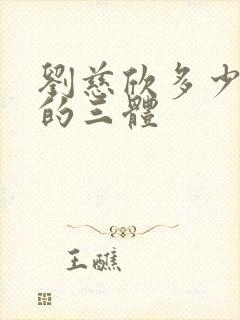 劉慈欣多少
的三體
王醮